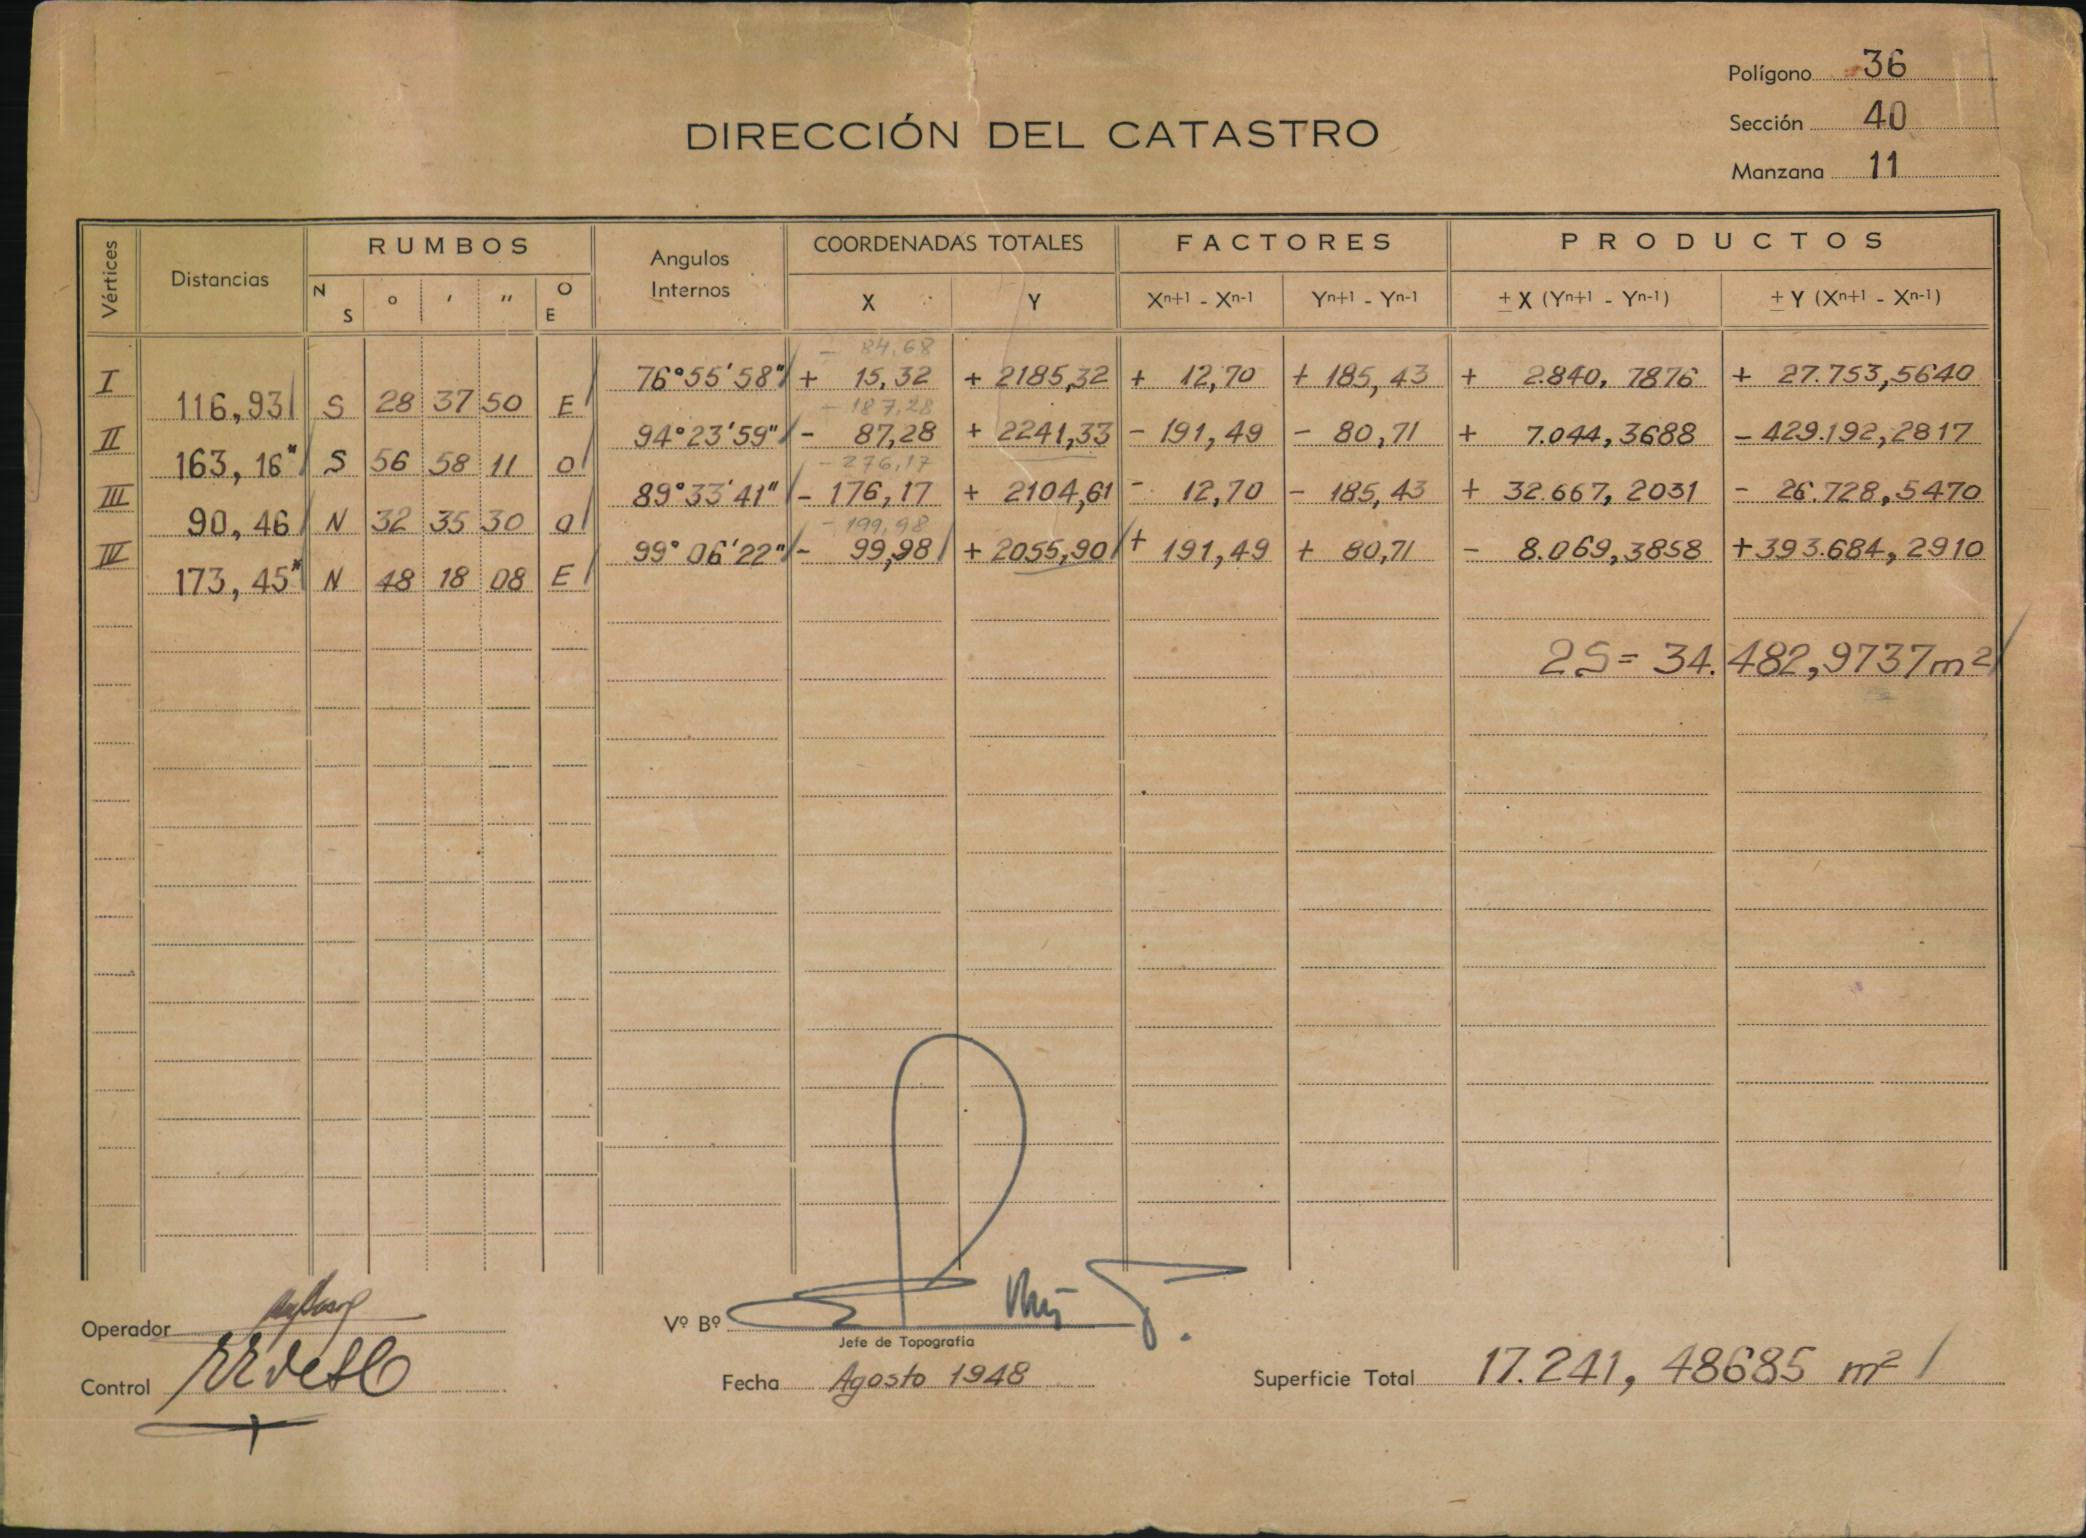 Polígono 36
Sección 40
Manzana 11
DIRECCIÓN DEL CATASTRO
Vértices Distancias RUMBOS Angulos Internos COORDENADAS TOTALES FACTORES PRODUCTOS
N S ° ' " O E X Y Xn+1 - Xn-1 Yn+1 - Yn-1 ± X (Yn+1 - Yn-1) ± Y (Xn+1 - Xn-1)
- 84,68
I 76°55'58" + 15,32 + 2185,32 + 12,70 + 185,43 + 2.840,7876 + 27.753,5640
116,93 S 28 37 50 E - 187,28
II 94°23'59" - 87,28 + 2241,33 - 191,49 - 80,71 + 7.044,3688 - 429.192,2817
163,16* S 56 58 11 O - 276,17
III 89°33'41" - 176,17 + 2104,61 - 12,70 - 185,43 + 32.667,2031 - 26.728,5470
90,46 N 32 35 30 O - 199,98
IV 99°06'22" - 99,98 + 2055,90 + 191,49 + 80,71 - 8.069,3858 + 393.684,2910
173,45* N 48 18 08 E
2S = 34.482,9737 m²
Operador
Vº Bº
Jefe de Topografía
Control
Fecha Agosto 1948
Superficie Total 17.241,48685 m²